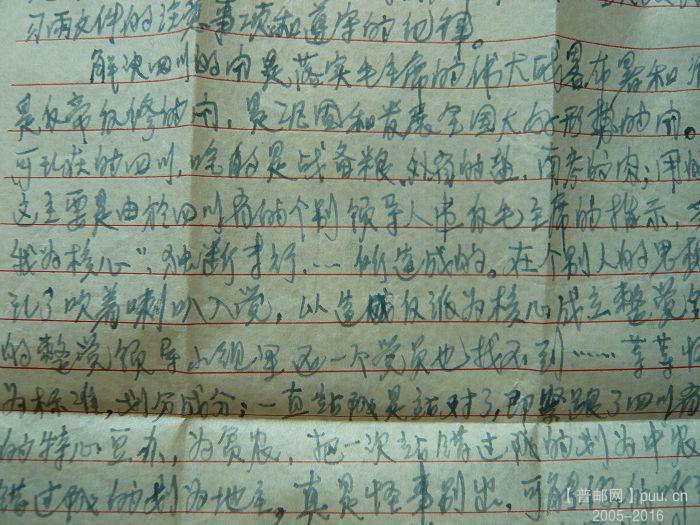 习两文件的注意事项和遵守的纪律。
解决四川的问是落实毛主席的伟大战畧布署和
是反帝反修的问，是巩固和发展全国大好形势的问。
可现在的四川，吃的是战备粮，外省的盐，
这主要是由於四川省的个别领导人违反毛主席的指示，
我为核心”，独断专行，……所造成的。在个别人的思
了吹着喇叭入党，以造成反派为核心成立整党
的整党领导小组里面一个党员也找不到……等等
为标准，划分成分：一直站队是站对了，即紧跟了四川省
的 为贫农，把一次站错过队的划为中农
错过队的划为地主，真是怪事别出，可
【普邮网】puu.cn
2005-2016